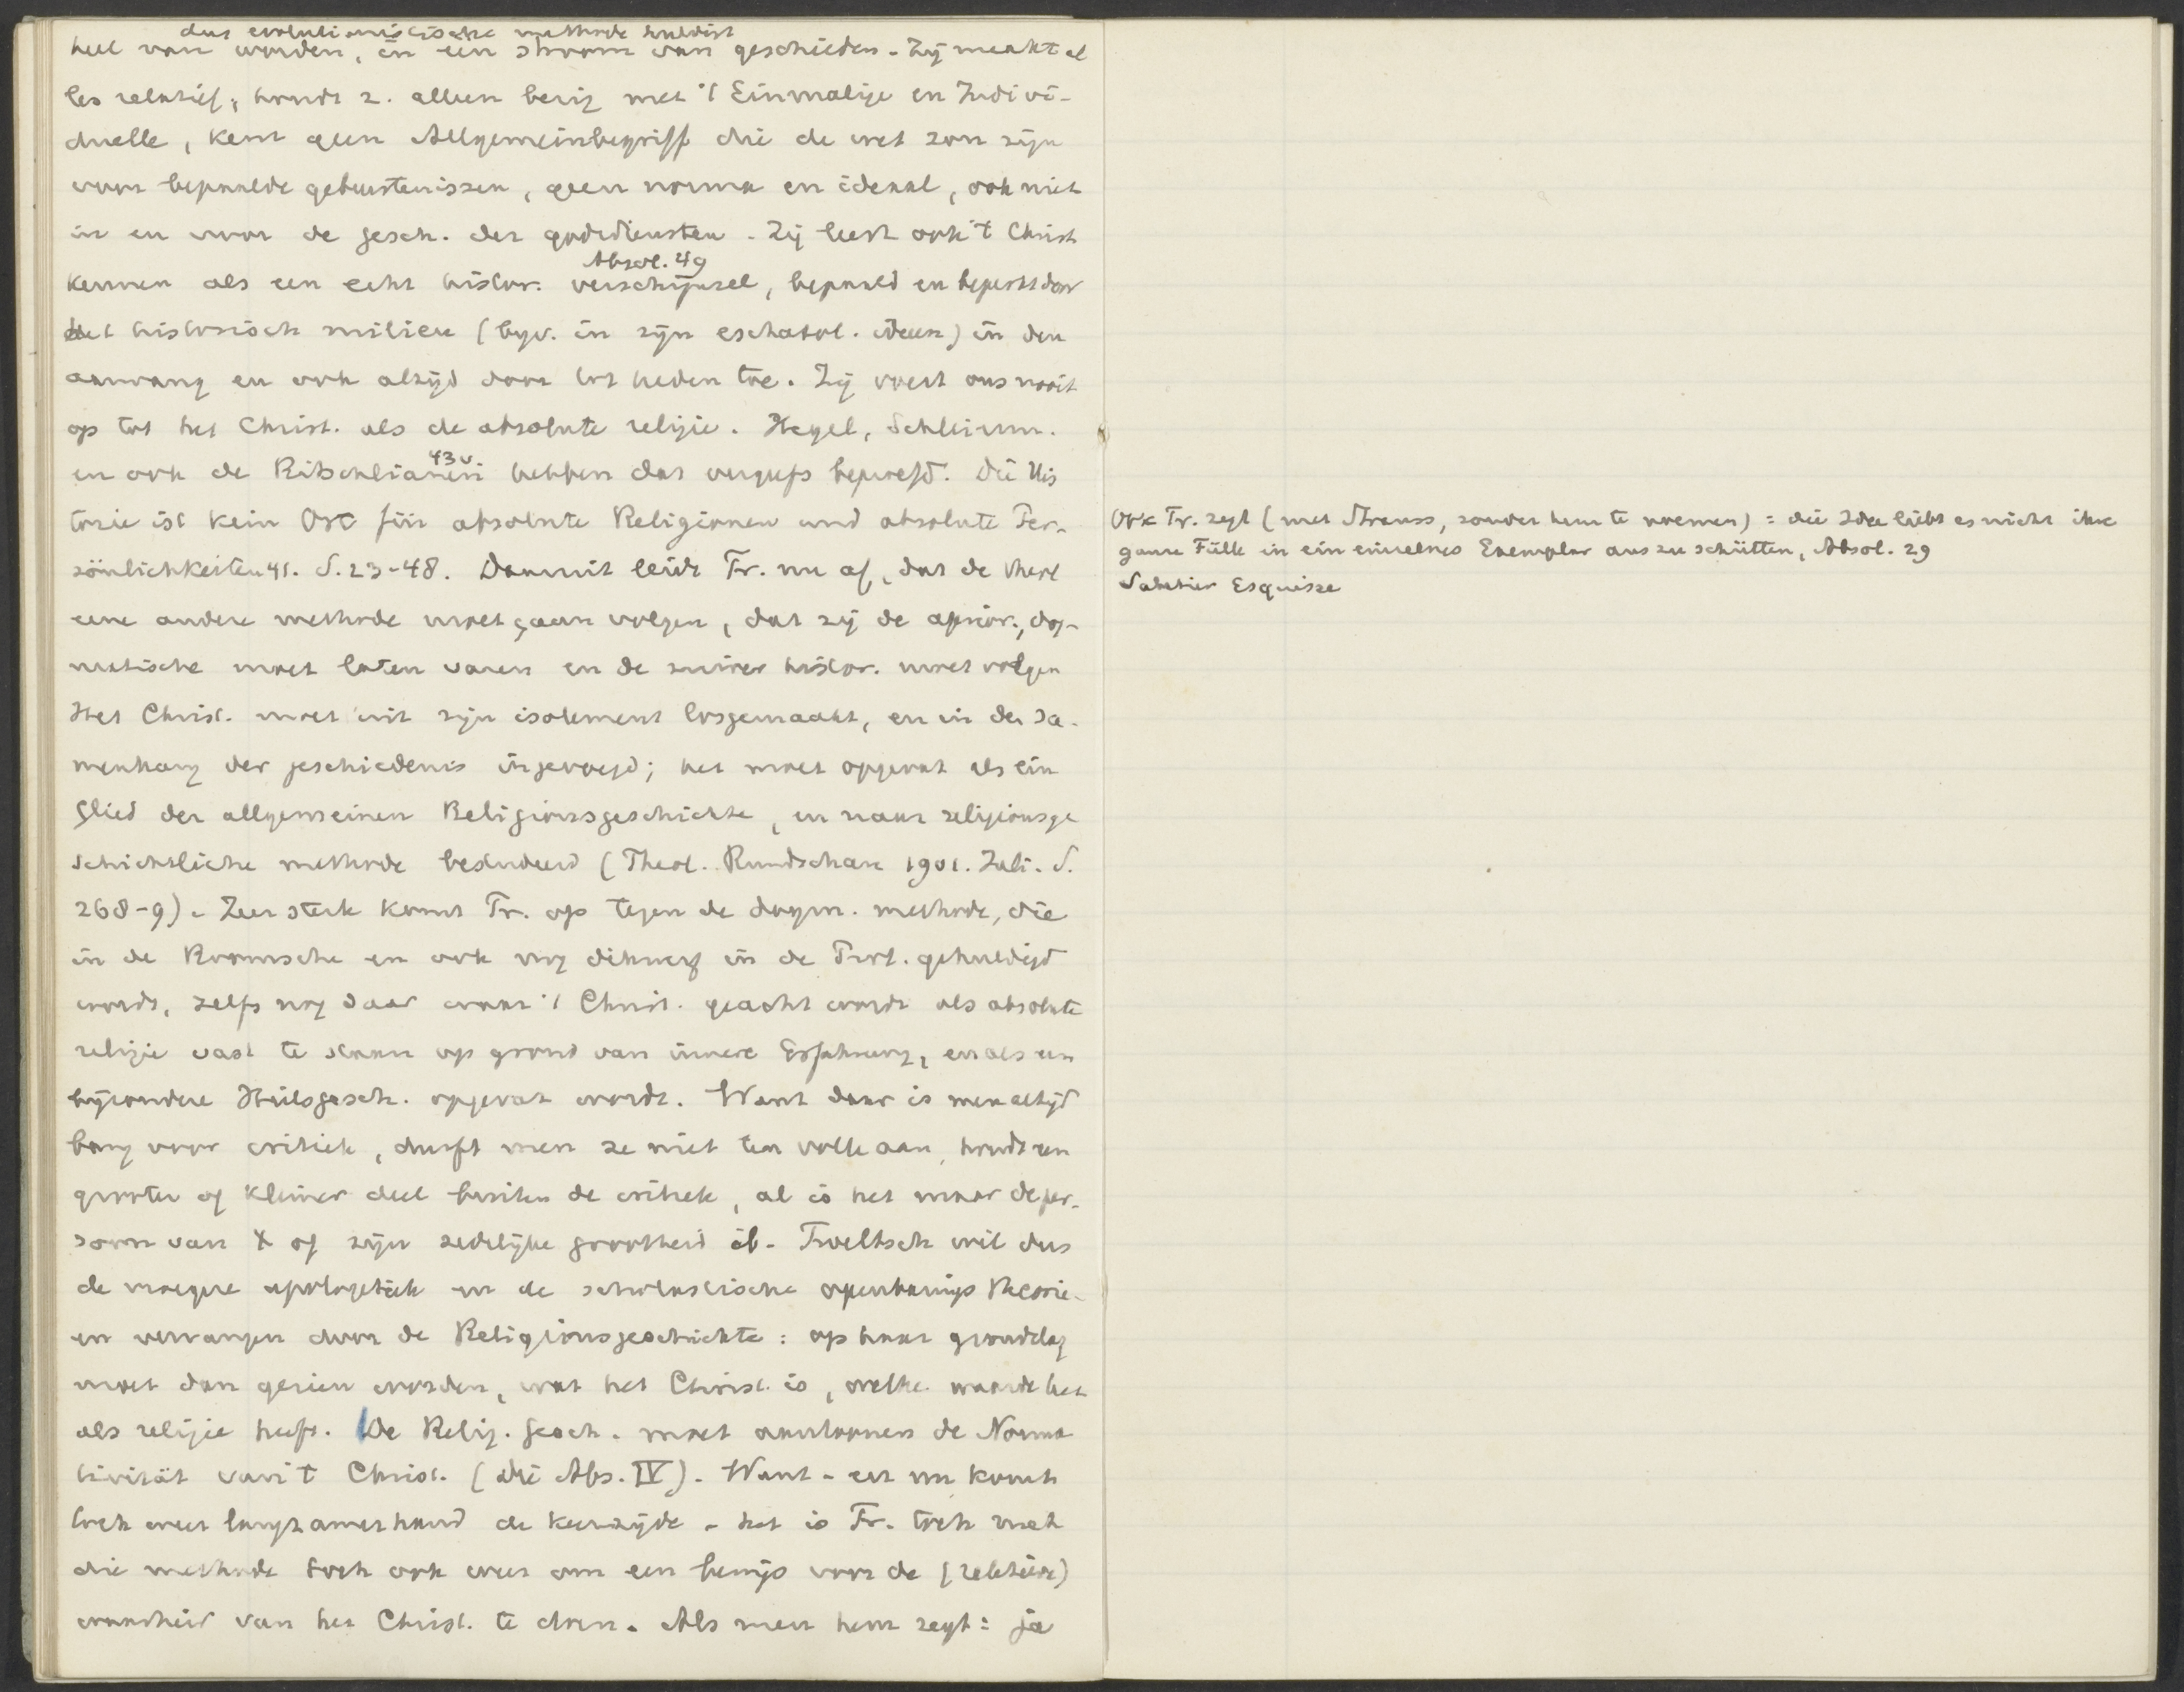 dus evolutionistische methode huldigt
heel van worden, in een stroom van geschieden. Zij maakt al
les relatief; houdt z. alleen bezig met 't Einmalige en Indivi-
duelle, kent geen Allgemeinbegriff die de wet zou zijn
voor bepaalde gebeurtenissen, geen norma en ideaal, ook niet
in en voor de gesch. der godsdiensten. Zij leert ook 't Christ
Absol. 49
kennen als een echt histor. verschijnsel, bepaald en beperkt door
het historisch milieu (bijv. in zijn eschatol. ideeen) in den
aanvang en ook altijd door tot heden toe. Zij voert ons nooit
op tot het Christ. als de absolute religie. Hegel, Schleierm.
43v
en ook de Ritschlianen hebben dat vergeefs beproefd. Die His
torie ist kein Ort für absolute Religionen und absolute Per-
sönlichkeiten 41. S. 23-48. Daaruit leidt Tr. nu af, dat de theol
eene andere methode moet gaan volgen, dat zij de aprior., dog-
matische moet laten varen en de zuiver histor. moet volgen
Het Christ. moet uit zijn isolement losgemaakt, en in den sa-
menhang der geschiedenis ingevoegd; het moet opgevat als ein
Glied der allgemeinen Religionsgeschichte, en naar religionsge
schichtliche methode bestudeerd (Theol. Rundschau 1901. Juli. S.
268-9). Zeer sterk komt Tr. op tegen de dogm. methode, die
in de Roomsche en ook nog dikwerf in de Prot. gehuldigd
wordt, zelfs nog daar waar 't Christ. geacht wordt als absolute
religie vast te staan op grond van innere Erfahrung, en als een
bijzondere Heilsgesch. opgevat wordt. Want daar is men altijd
bang voor critiek, durft men ze niet ten volle aan, houdt een
grooter of kleiner deel buiten de critiek, al is het maar de per-
soon van X of zijn zedelijke grootheid ib. Troeltsch wil dus
de vroegere apologetiek en de scholastische openbarings theorie-
en vervangen door de Religionsgeschichte: op haar grondslag
moet dan gezien worden, wat het Christ. is, welke waarde het
als religie heeft. De Relig. gesch. moet aantoonen de Norma
tivität van 't Christ. (die Abs. IV). Want - en nu komt
toch weer langzamerhand de keerzijde - het is Tr. toch met
die methode toch ook weer om een bewijs voor de (relatieve)
waarheid van het Christ. te doen. Als men hem zegt: ja
Ook Tr. zegt (met Strauss, zonder hem te noemen): die Idee liebt es nicht ihre
ganze Fülle in ein einzelnes Exemplar aus zu schütten, Absol. 29
Sabatier Esquisse